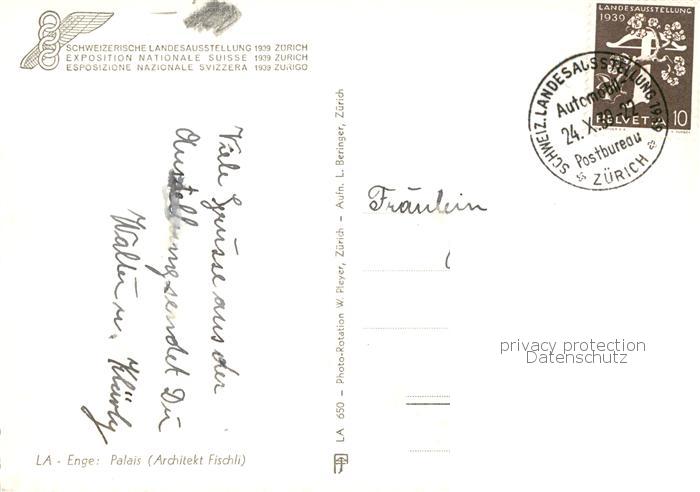 SCHWEIZERISCHE LANDESAUSSTELLUNG 1939 ZÜRICH
EXPOSITION NATIONALE SUISSE 1939 ZURICH
ESPOSIZIONE NAZIONALE SVIZZERA 1939 ZURIGO
LANDESAUSSTELLUNG
1939
HELVETIA 10
SCHWEIZ. LANDESAUSSTELLUNG 1939
Automobil-
24.X.39.22
Postbureau
ZÜRICH
Viele Grüsse aus der
Ausstellung sendet Du
Walter u. Klärly
Fräulein
LA 650 – Photo-Rotation W. Pleyer, Zürich – Aufn. L. Beringer, Zürich
privacy protection
Datenschutz
LA - Enge: Palais (Architekt Fischli)